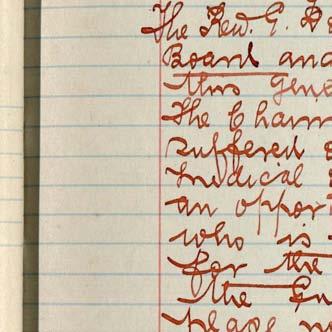 The Rev. G.
Board and
this
The Chairm
suffered
medical
an oppor
who is
for the
the
please